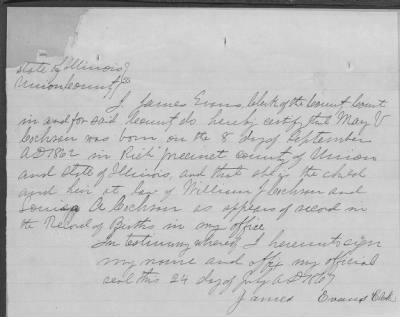 State of Illinois }
Union County } SS
I James Evans, Clerk of the County Court
in and for said County do hereby certify that May V
Cochran was born on the 8 day of September
AD 1862 in Rich precinct County of Union
and State of Illinois, and that she is the child
and heir at law of William J Cochran and
Louisa A Cochran as appears of record in
the Record of Births in my office
In testimony whereof I hereunto sign
my name and affix my official
seal this 24 day of July AD 1867
James Evans Clerk